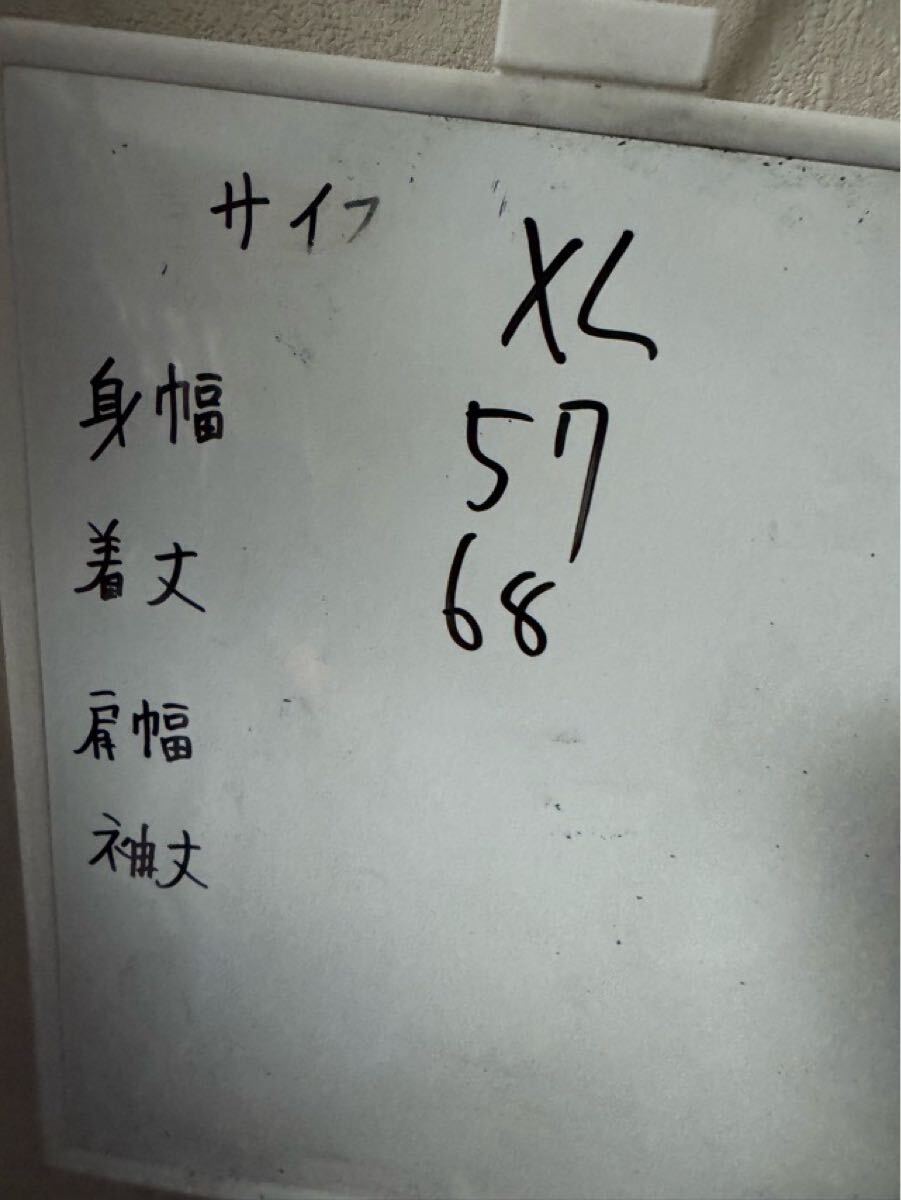 サイフ XL
身幅 57
着丈 68
肩幅
袖丈